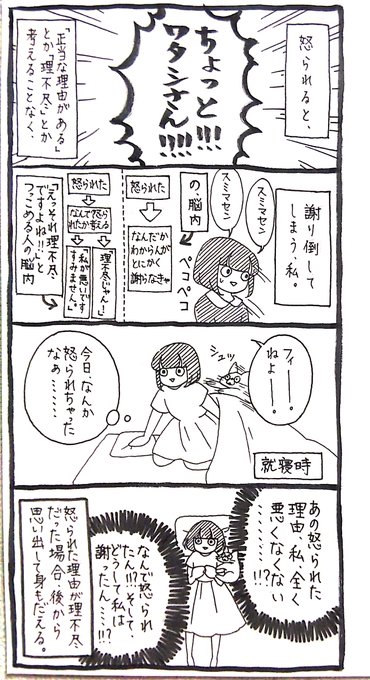 怒られると、
ちょっと
ワタシさん!!!!!!
「正当な理由がある」
とか「理不尽」とか
考えることなく、
謝り倒して
しまう、私。
スミマセン
スミマセン
ペコペコ
の、脳内
怒られた
なんだか
わからんが
とにかく
謝らなきゃ
怒られた
なんで怒ら
れたか考える
「理不尽じゃん!」
「私が悪いです
すみません。」
「えっそれ理不尽
ですよね!!」と
つっこめる人の脳内
フィーー。
ねよー。
シュッ
就寝時
今日、なんか
怒られちゃった
なぁ………
あの怒られた
理由、私、全く
悪くなくない
…………!?
なんで怒られ
たん!?そして、
どうして私は
謝ったん……!?
怒られた理由が理不尽
だった場合、後から
思い出して身もだえる。